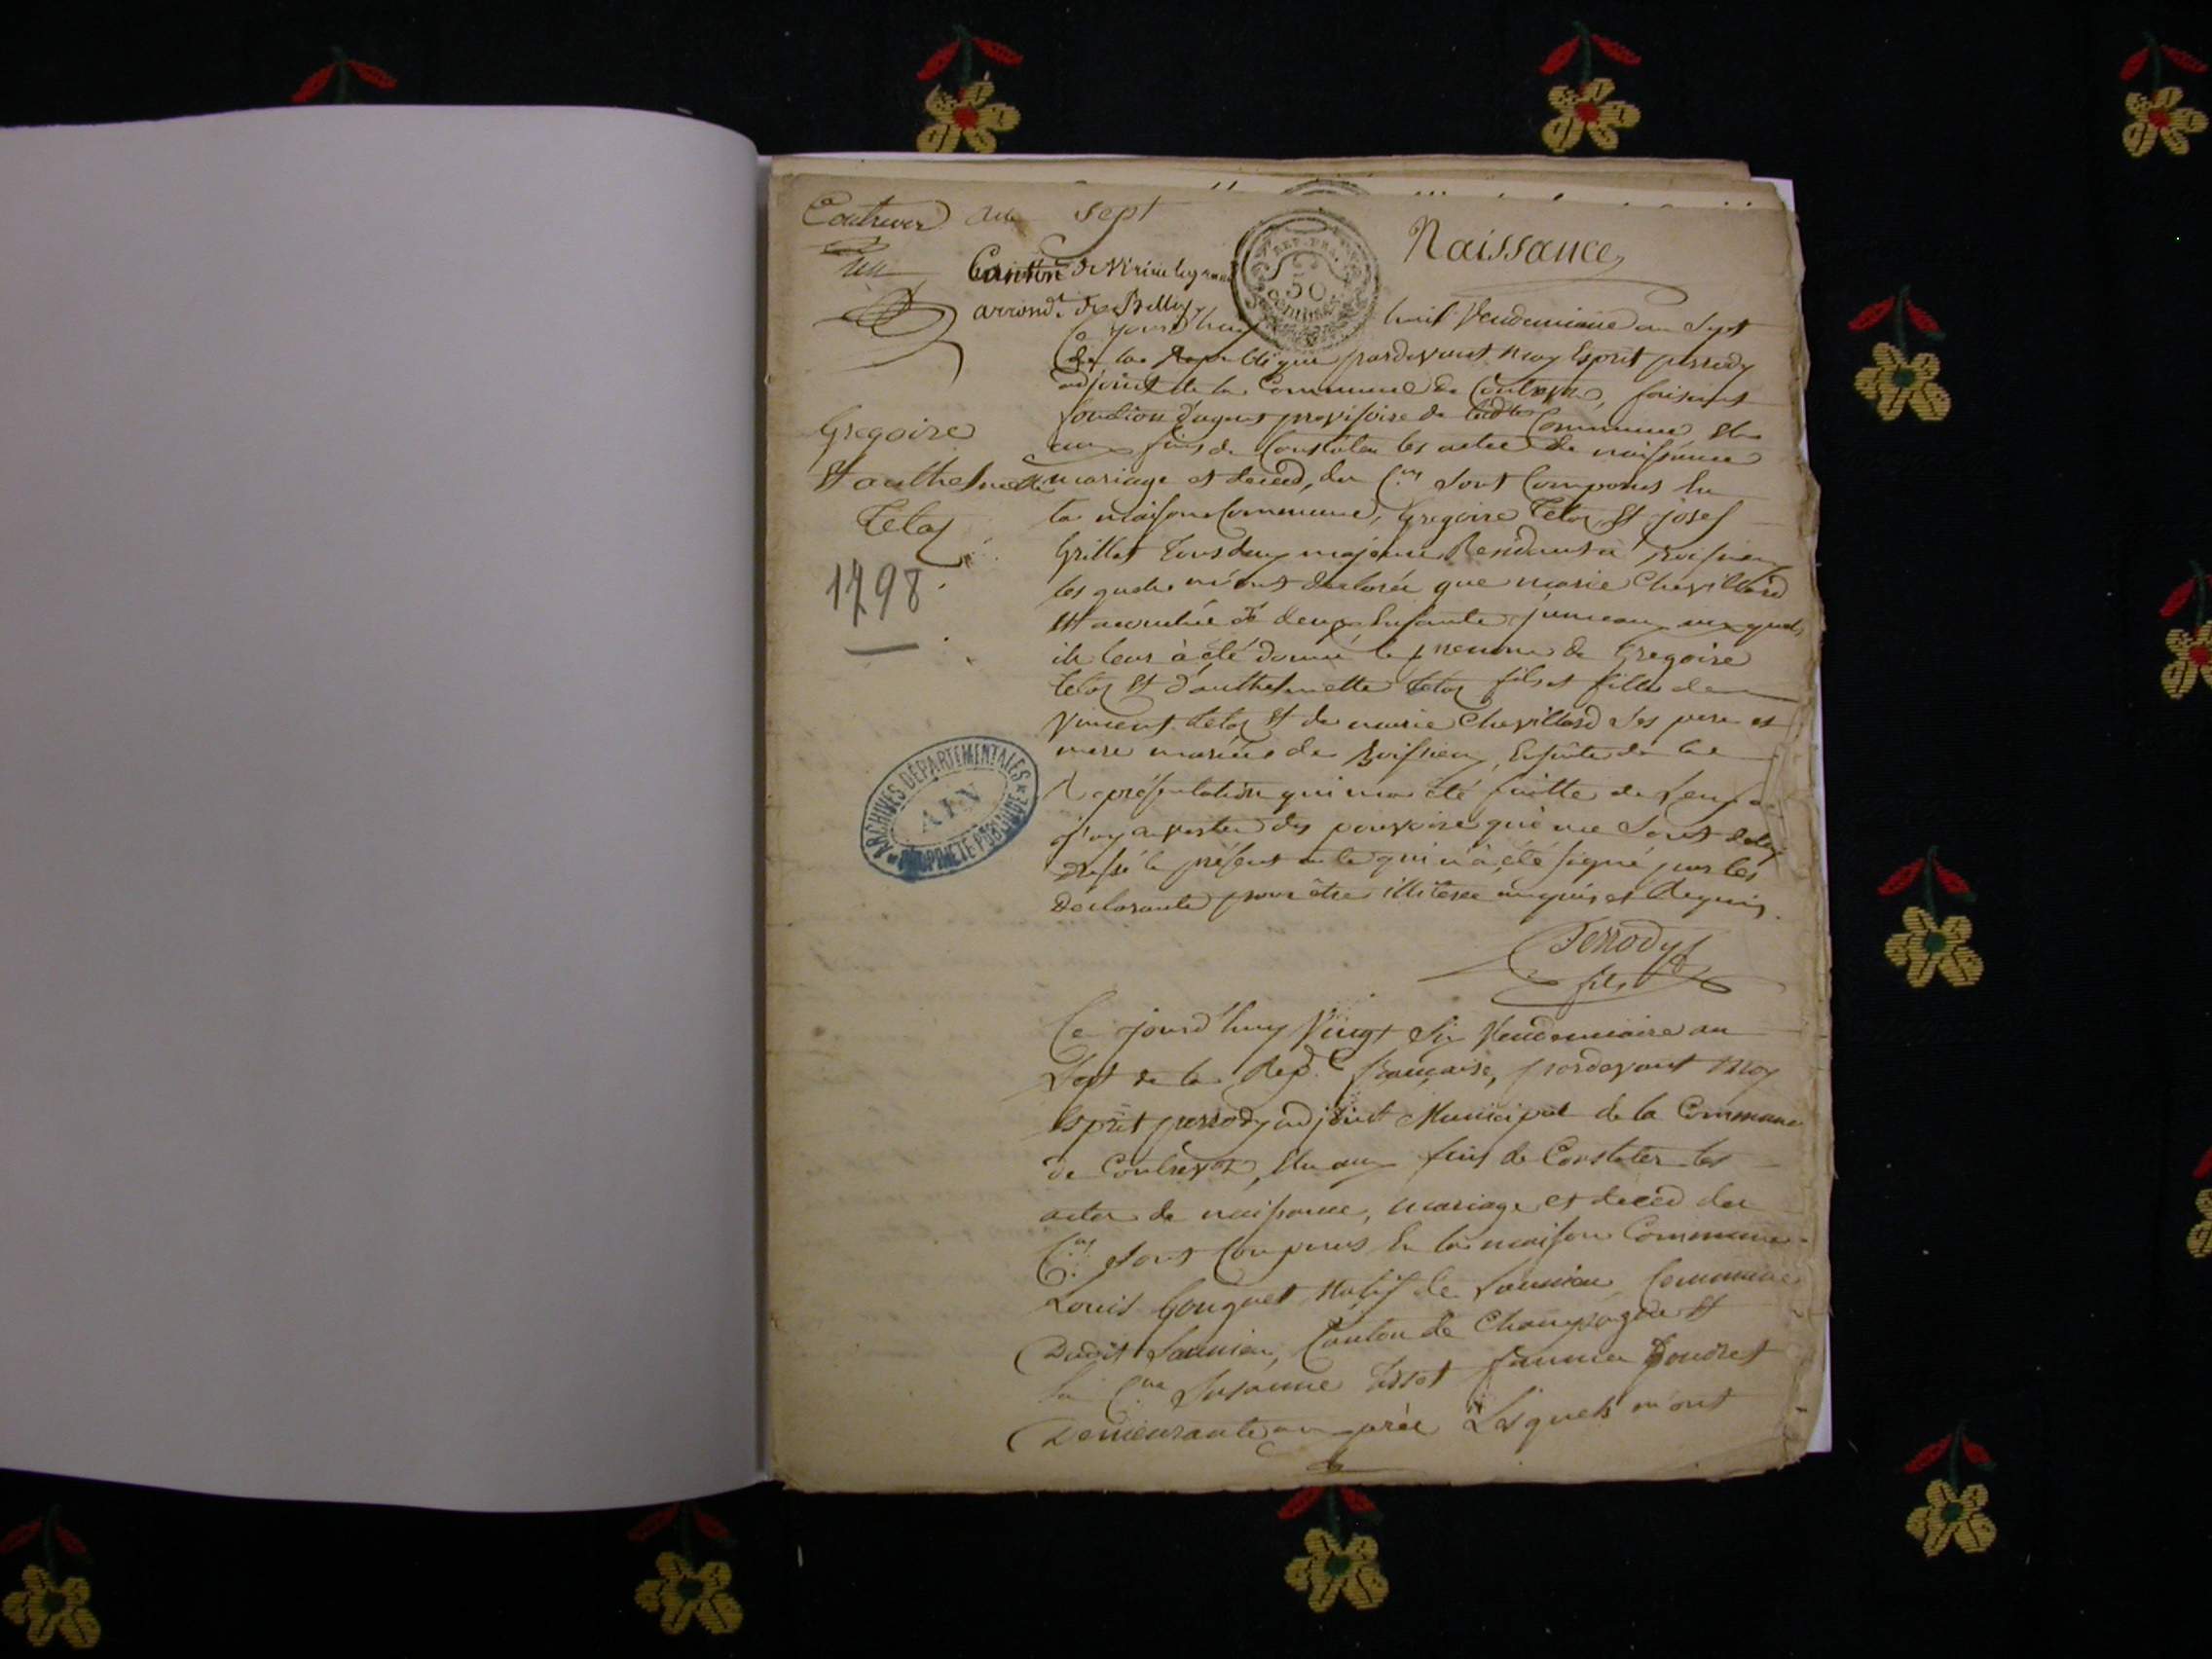 Contrevoz an sept
un
Canton de Virieu le grand
arrond.t de Belley
REP. FRA.
50
CENTIMES
Naissance
Ce jourd'huy huit Vendemiaire an Sept
de la Republique pardevant moy Esprit perrody
adjoint de la Commune de Contrevoz, faisant
fonction d'agent provisoire de ladte Commune Elu
aux fins de Constater les actes de naissance
mariage et decéd, des C.ens sont Comparus En
la maison Commune, Gregoire Teloz Et josef
Grillet tous deux majeurs Residants à
les quels m'ont declarée que marie Chevillard
Et accouchée de deux Enfants jumeaux aux quels
ils leurs à été donné le prenom de Gregoire
Teloz Et d'anthelmette Teloz fils et filles de
Vincent Teloz Et de marie Chevillard ses pere et
mere mariées de Boissieu, Ensuite de la
Représentation qui m'a été faitte de
j'ay en vertu des pouvoirs qui me sont delég
dressé le présent acte qui n'a été signé par les
Declarants pour être illiteree enquis et Requis.
Gregoire
Et anthelmette
Teloz
1798
ARCHIVES DÉPARTEMENTALES
AIN
PROPRIÉTÉ PUBLIQUE
Perrody
fils
Ce jourd'huy Vingt Six Vendemiaire an
Sept de la Rep.e française, pardevant moy
Esprit perrody adjoint Municipal de la Commune
de Contrevoz, Elu aux fins de Constater les
actes de naissance, mariage et decéd des
C.ens sont Comparus En la maison Commune
Louis Gouguet Natif de Commune
Dudit Canton de Champagne Et
la C.ne Susanne femme Poudret
Demeurante Lesquels m'ont